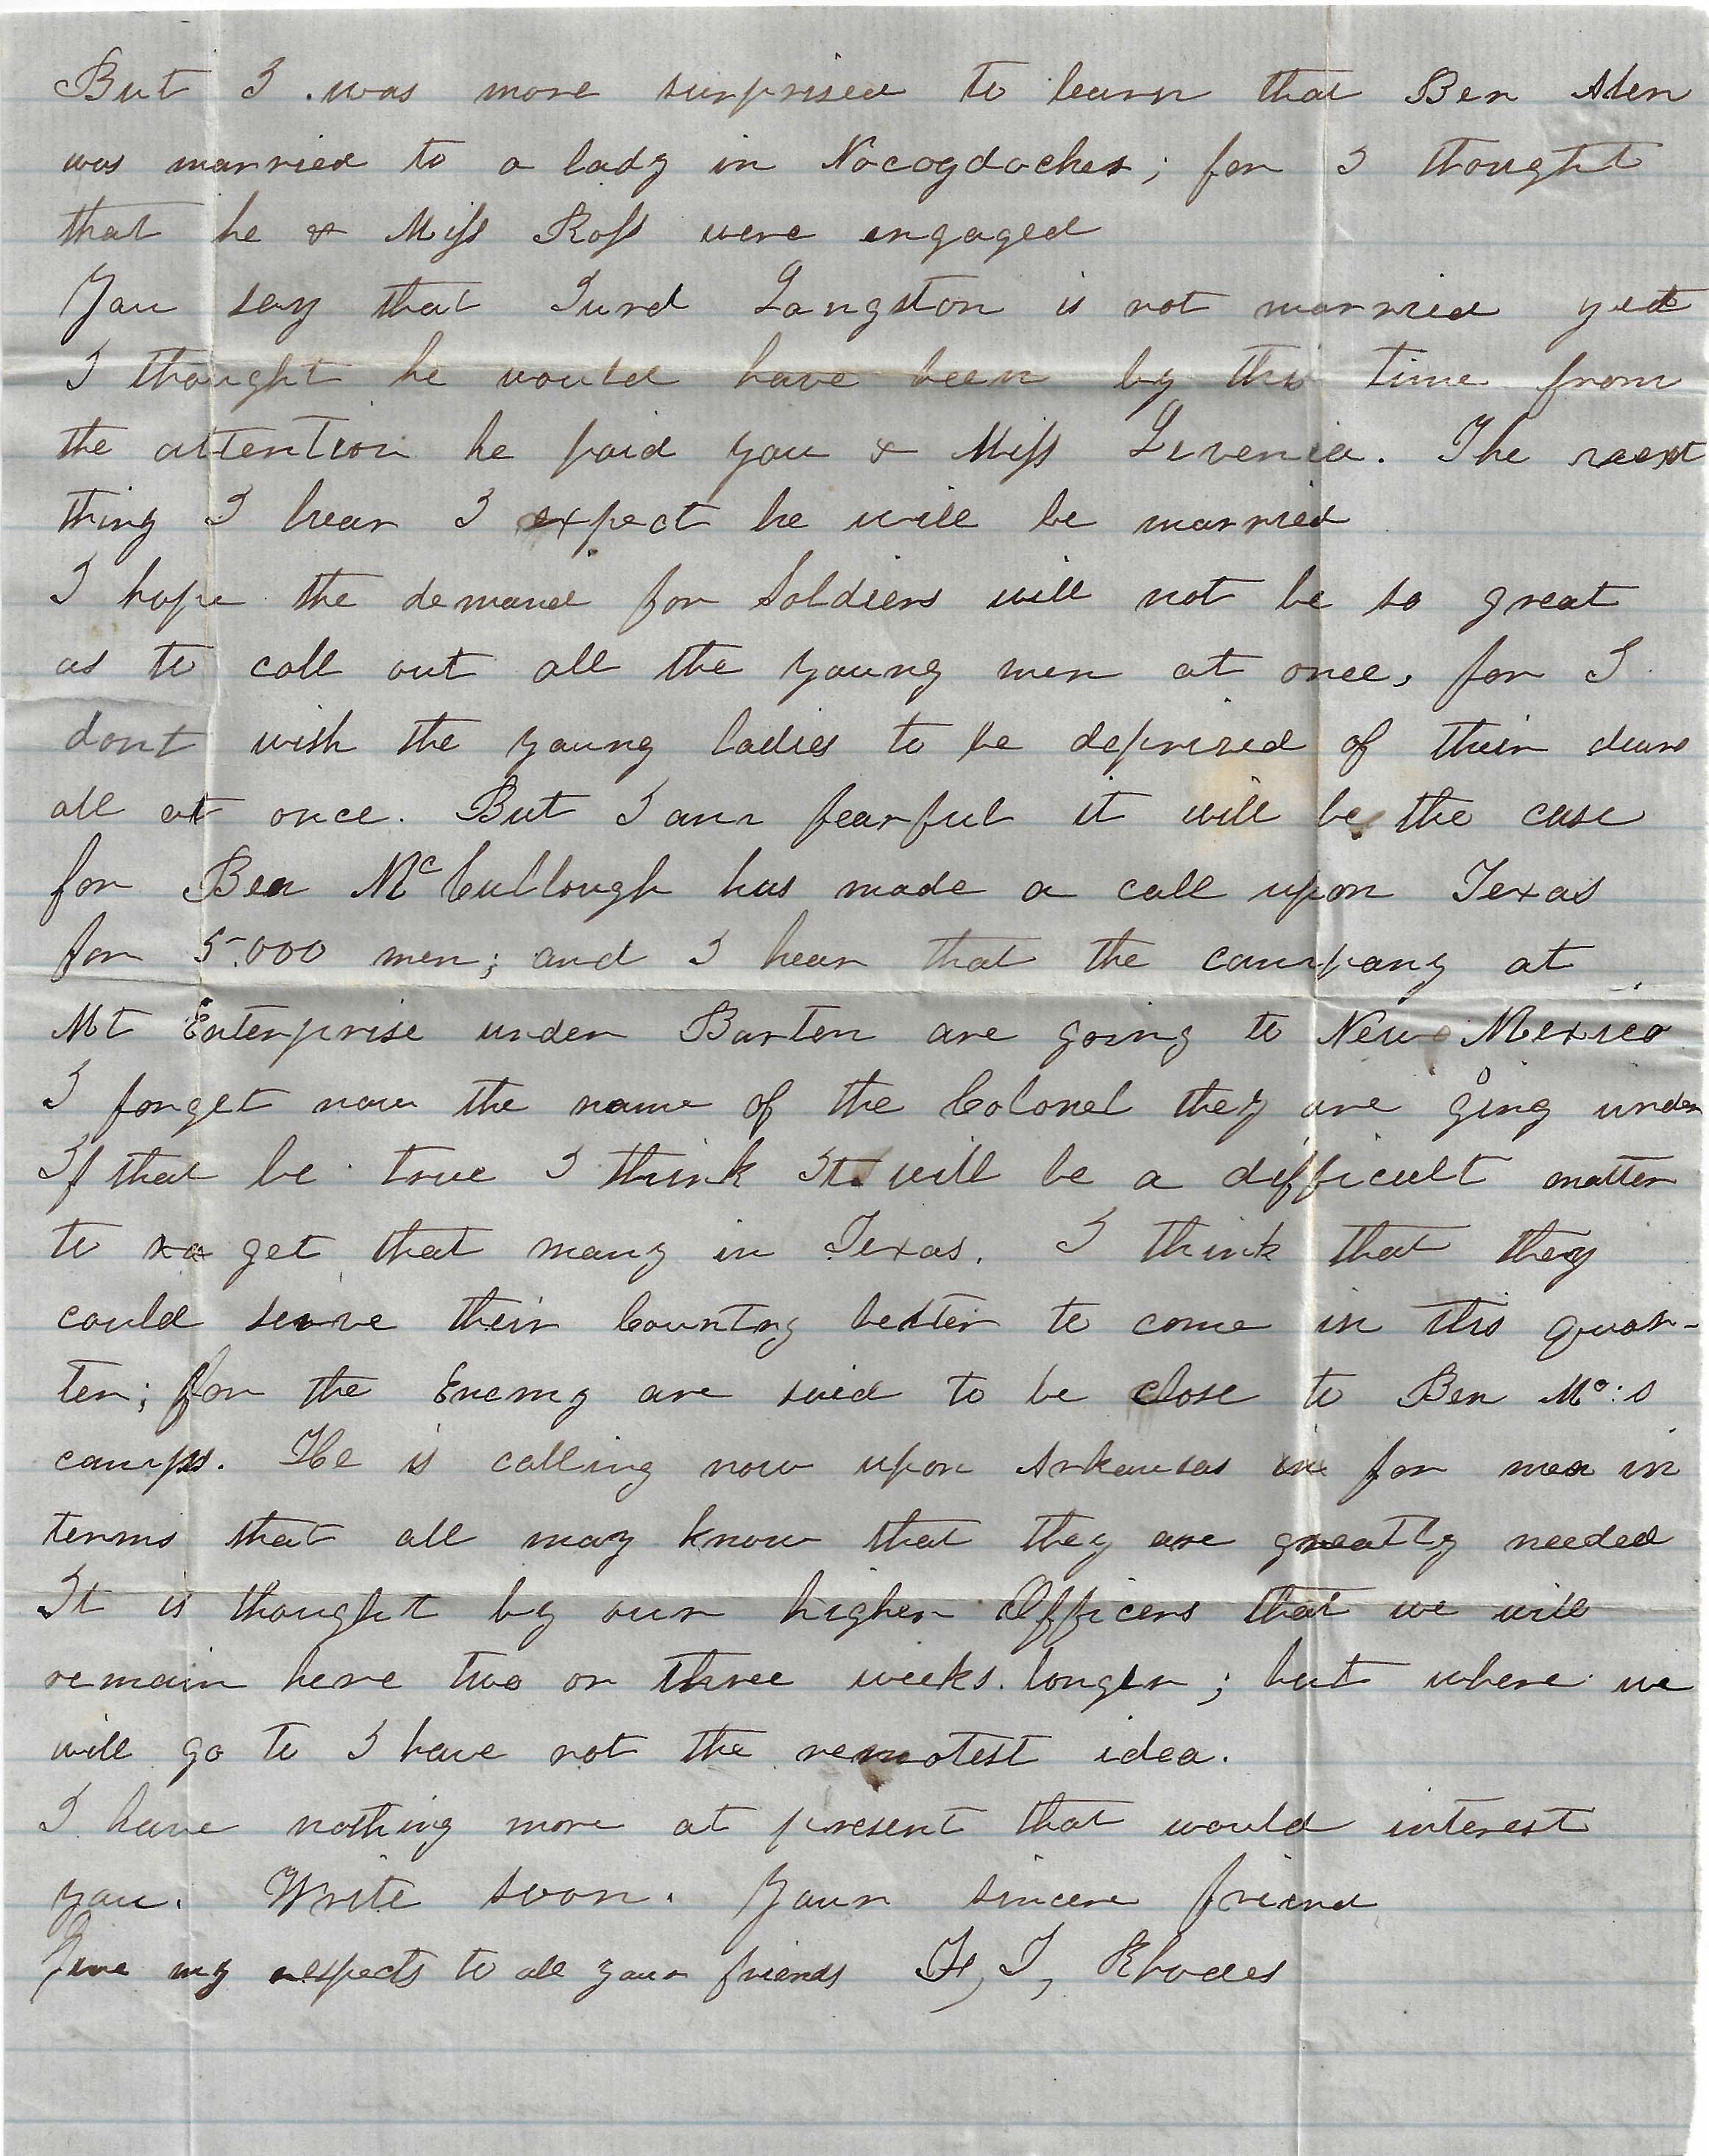 But I was more surprised to learn that Ben Aden
was married to a lady in Nocogdoches; for I thought
that he & Miss Ross were engaged
You say that Langston is not married yet
I thought he would have been by this time from
the attention he paid you & Miss Livenia. The next
thing I hear I expect he will be married
I hope the demand for Soldiers will not be so great
as to call out all the young men at once, for I
dont wish the young ladies to be deprived of their dears
all at once. But I am fearful it will be the case
for Ben McCullough has made a call upon Texas
for 5.000 men; and I hear that the company at
Mt Enterprise under Barton are going to New Mexico
I forget now the name of the Colonel they are going under
If that be true I think It will be a difficult matter
to get that many in Texas. I think that they
could serve their Country better to come in this quar-
ter; for the Enemy are said to be close to Ben Mc:s
camps. He is calling now upon Arkansas in for men in
terms that all may know that they are greatly needed
It is thought by our higher Officers that we will
remain here two or three weeks longer; but where we
will go to I have not the remotest idea.
I have nothing more at present that would interest
you. Write soon. Your sincere friend
Give my respects to all your friends Rhodes